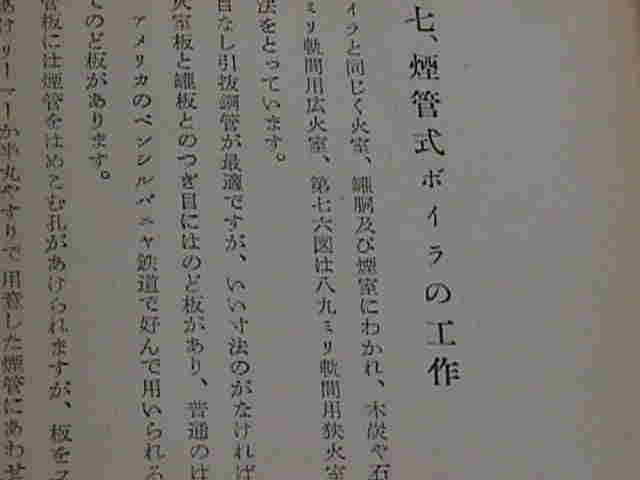 七、煙管式ボイラの工作
イラと同じく火室、罐胴及び煙室にわかれ、木炭や石
ミリ軌間用広火室、第七六図は八九ミリ軌間用狭火室
法をとっています。
目なし引抜鋼管が最適ですが、いい寸法のがなければ
火室板と罐板とのつぎ目にはのど板があり、普通のは
アメリカのペンシルバニヤ鉄道で好んで用いられる
てのど板があります。
管板には煙管をはめこむ孔があけられますが、板をフ
あけリーマーか半丸やすりで用意した煙管にあわせ